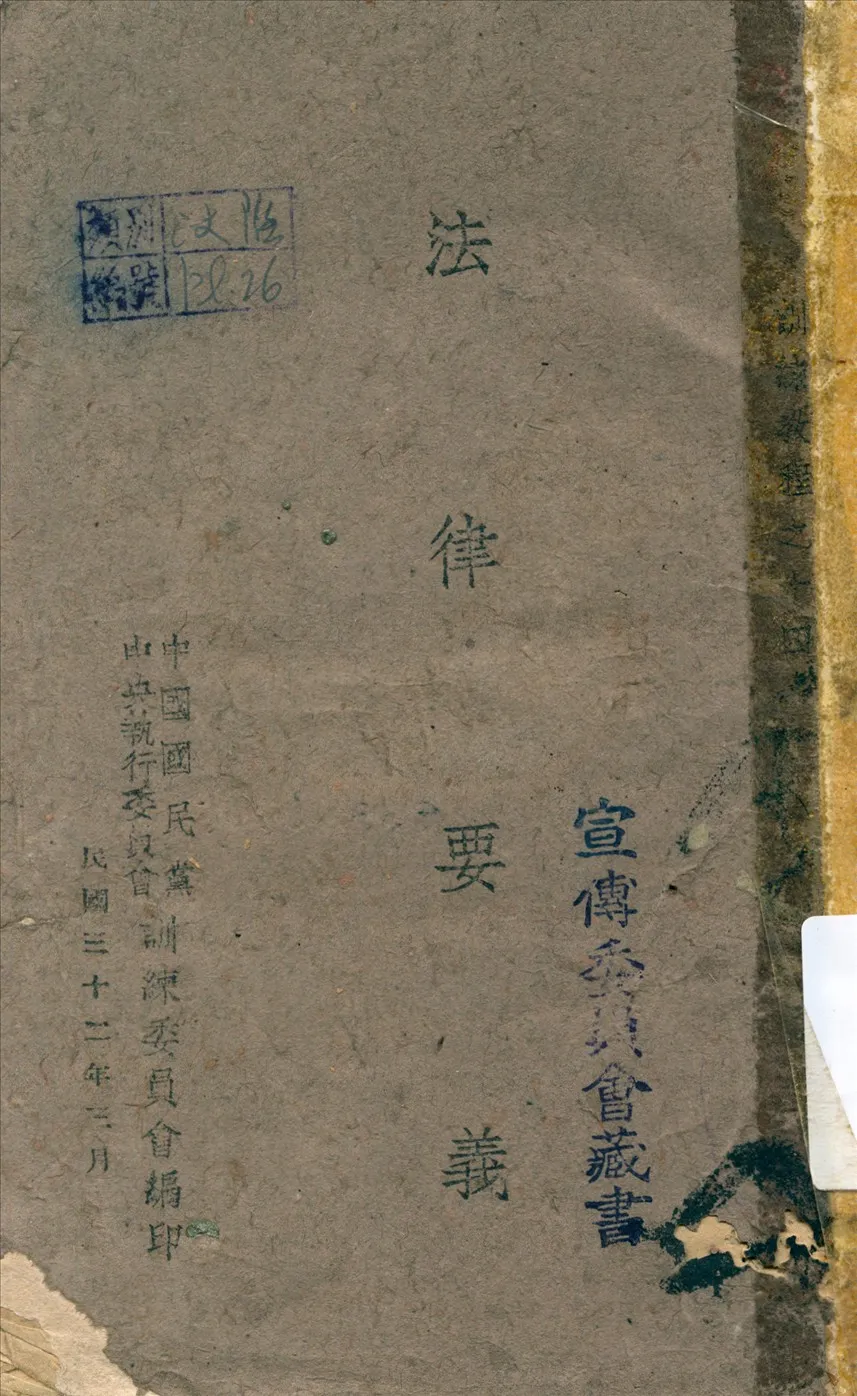 訓練教程之
法律要義
宣傳委員會藏書
中國國民黨
中央執行委員會
訓練委員會編印
民國三十二年三月
類別
編號